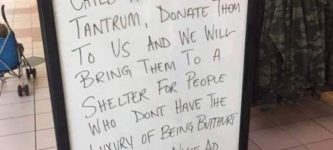 TANTRUM, DONATE THEM
TO US AND WE WILL
BRING THEM TO A
SHELTER FOR PEOPLE
WHO DONT HAVE THE
LUXURY OF BEING BUTTHURT
AD